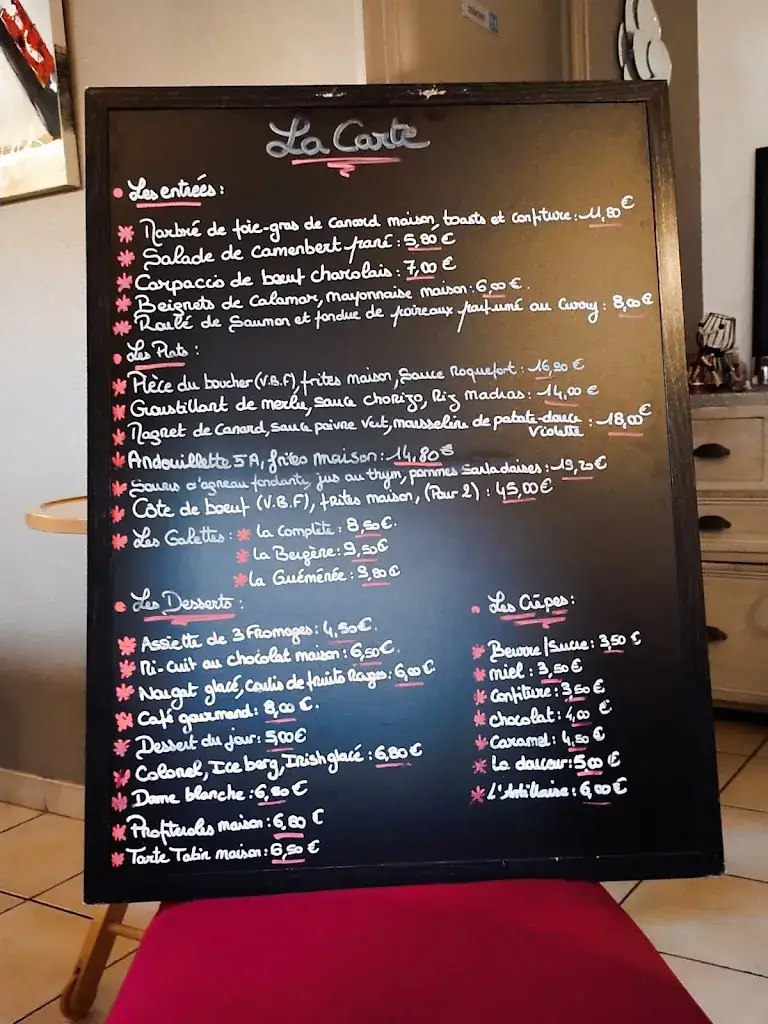 La Carte
Les entrées :
Marbré de foie-gras de Canard maison, toasts et confiture : 11,80 €
Salade de Camenbert pané : 5,80 €
Carpaccio de bœuf charolais : 7,00 €
Beignets de Calamar, mayonnaise maison : 6,00 €.
Roulé de Saumon et fondue de poireaux parfumé au Curry : 8,00 €
Les Plats :
Pièce du boucher (V.B.F), frites maison, Sauce Roquefort : 16,90 €
Croustillant de merlu, sauce chorizo, Riz Madras : 14,00 €
Magret de Canard, sauce poivre Vert, mousseline de patate-douce Violette : 18,00 €
Andouillette 5A, frites maison : 14,80 €
Souris d'agneau fondante, jus au thym, pommes Sarladaises : 19,20 €
Côte de bœuf (V.B.F), frites maison, (Pour 2) : 45,00 €
Les Galettes : La Complète : 8,50 €.
La Bergère : 9,50 €
La Guéménée : 9,80 €
Les Desserts :
Assiette de 3 Fromages : 4,50 €.
Mi-Cuit au chocolat maison : 6,50 €.
Nougat glacé, Coulis de fruits Rouges : 6,00 €
Café gourmand : 8,00 €.
Dessert du jour : 5,00 €
Colonel, Ice berg, Irish glacé : 6,80 €
Dame blanche : 6,80 €
Profiteroles maison : 6,80 €
Tarte Tatin maison : 6,50 €
Les Crêpes :
Beurre/Sucre : 3,50 €
miel : 3,50 €
Confiture : 3,50 €
chocolat : 4,00 €
Caramel : 4,50 €
La douceur : 5,00 €
L'Antillaise : 6,00 €